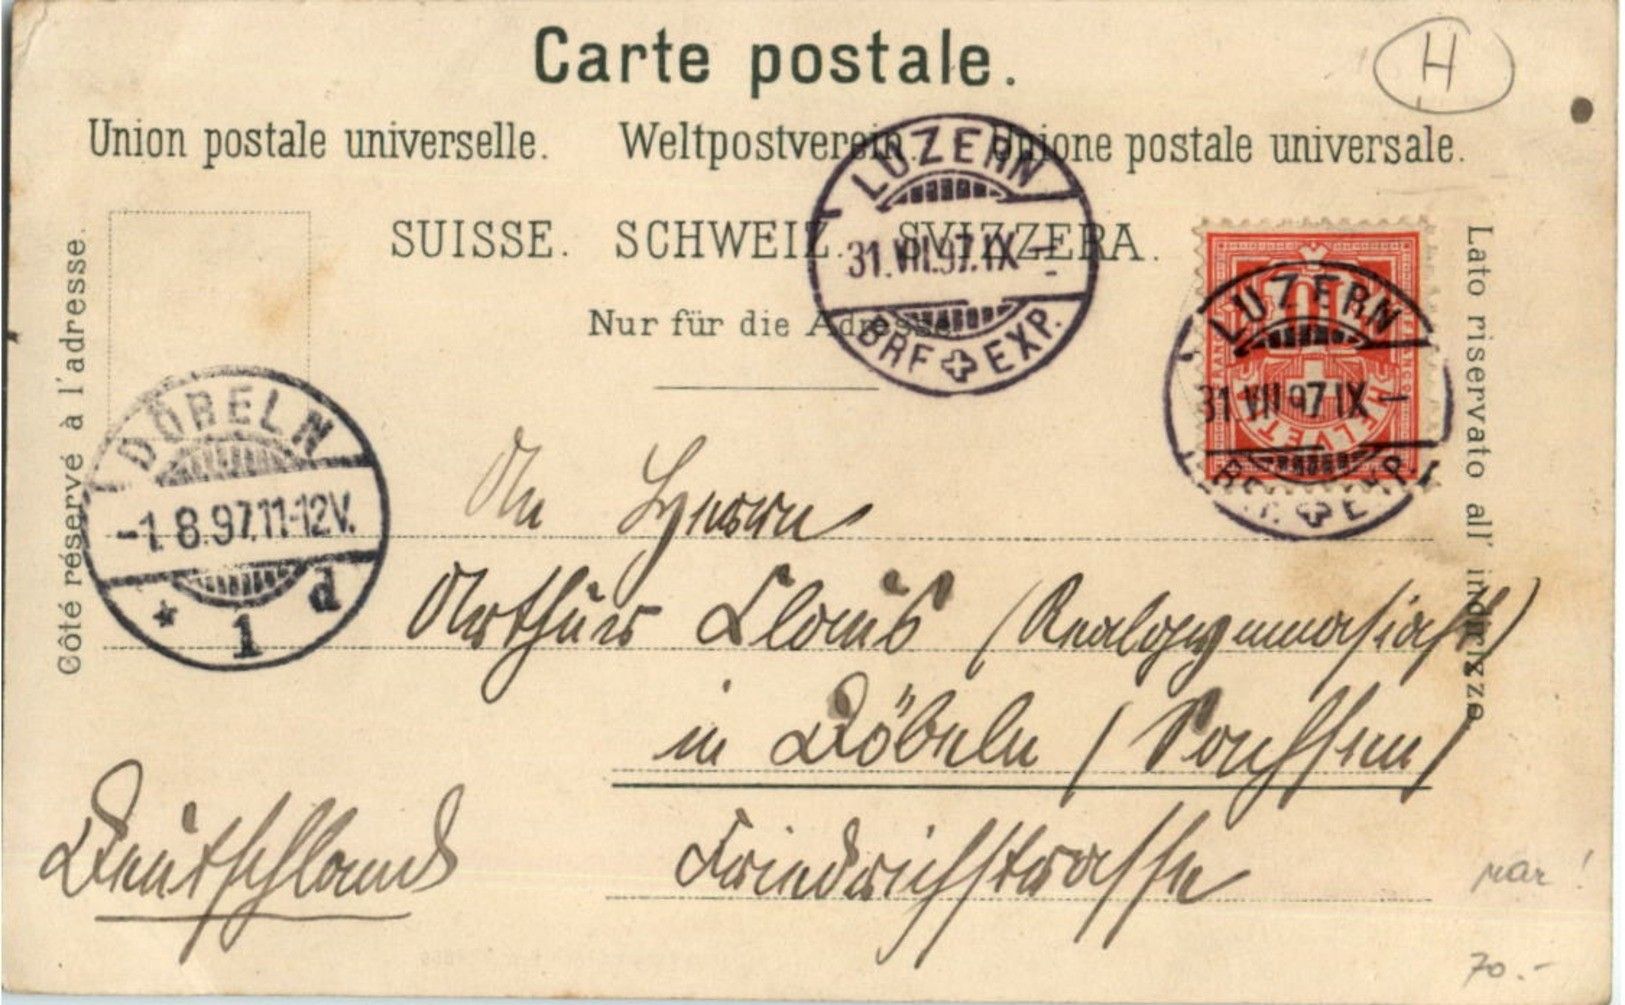 Carte postale.
H
Union postale universelle. Weltpostverein. Unione postale universale.
SUISSE. SCHWEIZ. SVIZZERA.
Nur für die Adresse
Côté réservé à l'adresse.
Lato riservato all' indirizzo.
LUZERN
31.VII.97.IX –
BRF. EXP.
LUZERN
31 VII 97 IX –
BRF. EXP.
FRANCO
HELVETIA
10
DÖBELN
-1.8.97.11-12V.
* 1 d
An Herrn
Arthur Claus (Realgymnasiast)
in Döbeln (Sachsen)
Friedrichstrasse
Deutschland
70.-